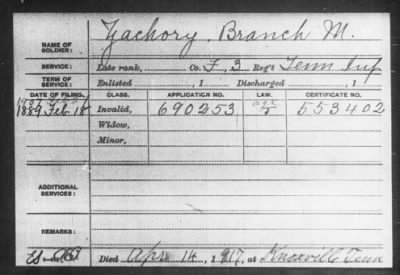 NAME OF SOLDIER: Zachory, Branch M.
SERVICE: Late rank, Co. F, 3 Reg't Tenn Inf
TERM OF SERVICE: Enlisted , 1 Discharged , 1
DATE OF FILING. CLASS. APPLICATION NO. LAW. CERTIFICATE NO.
1889 Feb 18 Invalid, 690253 553402
Widow,
Minor,
ADDITIONAL SERVICES:
REMARKS:
Died Apr 14, 1917, at Knoxville Tenn